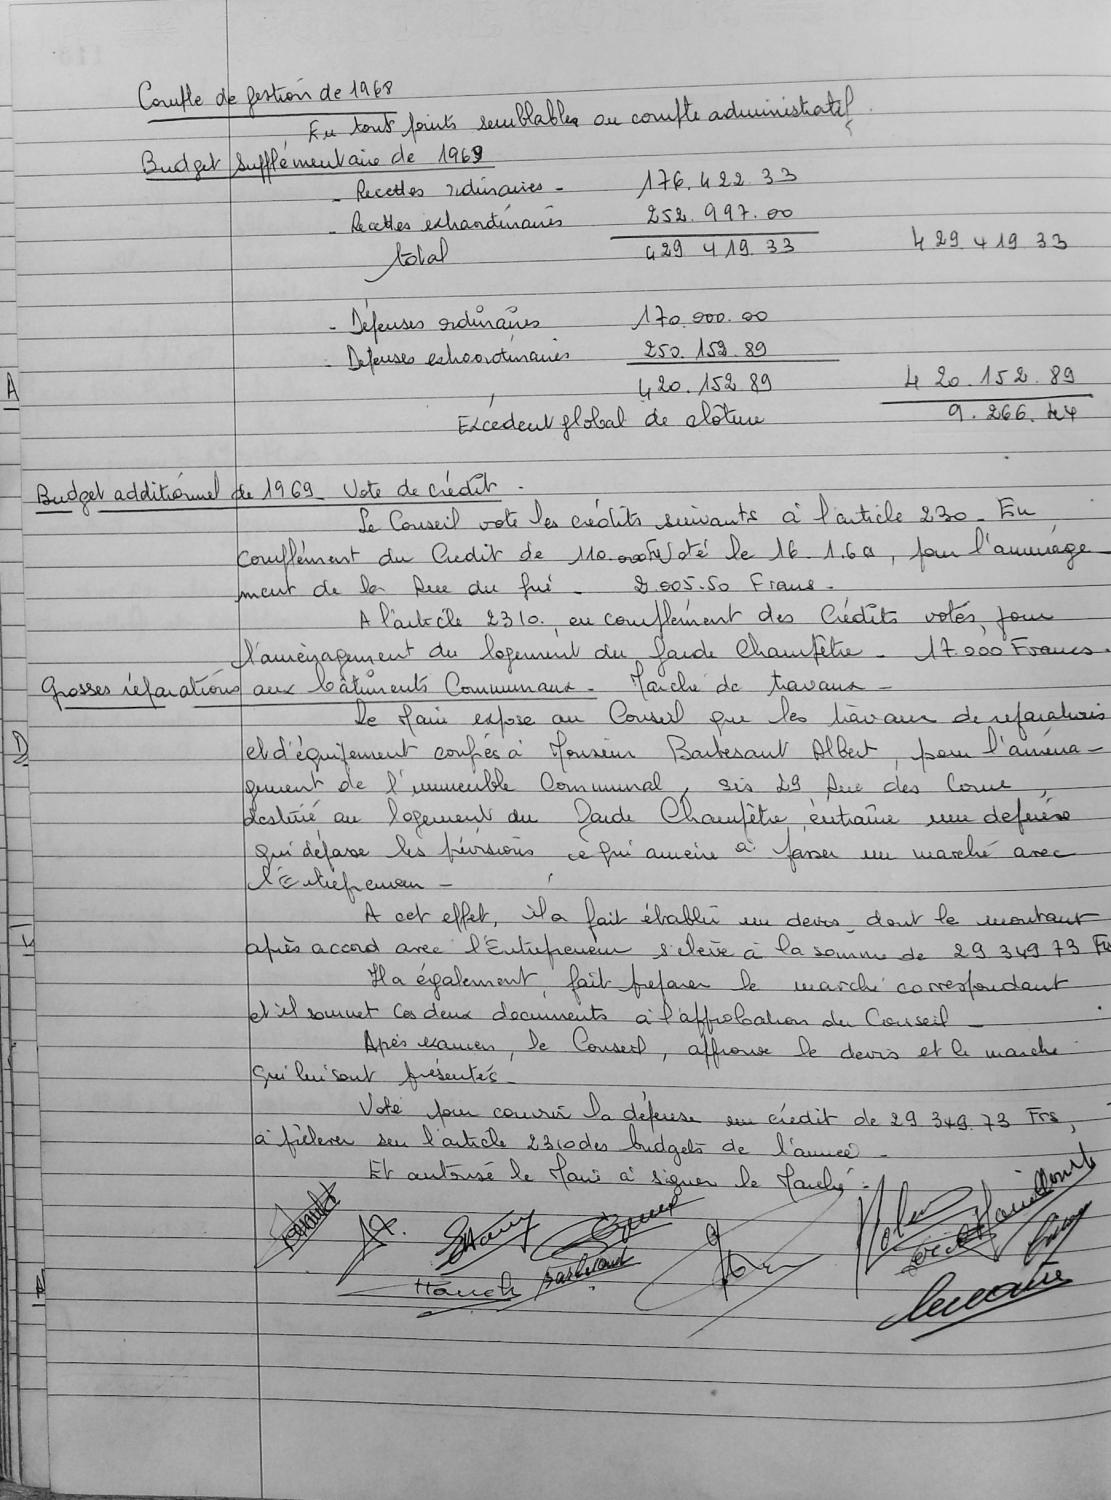 Compte de gestion de 1968
En tout points semblables au compte administratif.
Budget supplémentaire de 1969
- Recettes ordinaires - 176.422.33
- Recettes extraordinaires 252.997.00
total 429 419.33 429.419 33
- Dépenses ordinaires 170.000.00
- Dépenses extraordinaires 250.152.89
420.152.89 420.152.89
Excédent global de clôture 9.266.44
Budget additionnel de 1969 - Vote de crédit.
Le Conseil vote les crédits suivants à l'article 230 - En
complément du Crédit de 110.000 Fr Voté le 16.1.69, pour l'aménage-
ment de la Rue du pré - 2.005.50 Francs -
A l'article 2310, en complément des Crédits votés, pour
l'aménagement du logement du garde Champêtre - 17.000 Francs.
Grosses réparations aux bâtiments Communaux - Marché de travaux -
Le Maire expose au Conseil que les travaux de réparations
et d'équipement confiés à Monsieur Barbesant Albert, pour l'aména-
gement de l'immeuble Communal, sis 29 Rue des
destiné au logement du Garde Champêtre, entraîne une dépense
qui dépasse les prévisions ce qui amène à passer un marché avec
l'Entrepreneur -
A cet effet, il a fait établir un devis, dont le montant
après accord avec l'Entrepreneur s'élève à la somme de 29 349.73 Frs
Il a également, fait préparer le marché correspondant
et il soumet ces deux documents à l'approbation du Conseil -
Après examen, le Conseil, approuve le devis et le marché
qui lui sont présentés -
Vote pour couvrir la dépense un crédit de 29 349.73 Frs,
à prélever sur l'article 2310 des budgets de l'année -
Et autorise le Maire à signer le Marché.
A
D